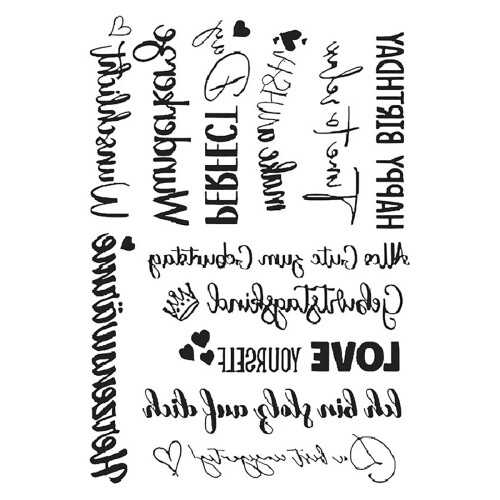 Wunschlicht
Wunderkerze
PERFECT Day
make a WISH
Time To relax
HAPPY BIRTHDAY
Herzenswärme
Alles Gute zum Geburtstag
Geburtstagskind
LOVE YOURSELF
Ich bin stolz auf dich
Du bist einzigartig!